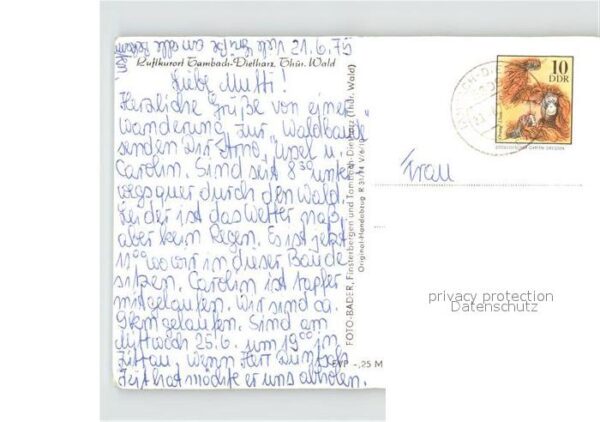 viele Grüße an alle 21.6.75
Luftkurort Tambach-Dietharz Thür. Wald
Liebe Mutti!
Herzliche Grüße von einer
Wanderung zur Waldbaude
senden Dir Arno, Ursel u.
Carolin. Sind seit 8 30 unter
wegs quer durch den Wald
Leider ist das Wetter naß
aber kein Regen. Es ist jetzt
11 00 wo wir in dieser Baude
sitzen. Carolin ist tapfer
mitgelaufen. Wir sind ca.
9km gelaufen. Sind am
Mittwoch 25.6. um 19 00 in
Zittau. Wenn Herr
Zeit hat möchte er uns abholen.
FOTO-BADER, Finsterbergen und Tambach-Dietharz (Thür. Wald)
Original-Handabzug R 31/74 V/6/10
EVP -,25 M
10
DDR
Orang-Utan
ZOOLOGISCHER GARTEN DRESDEN
Frau
privacy protection
Datenschutz